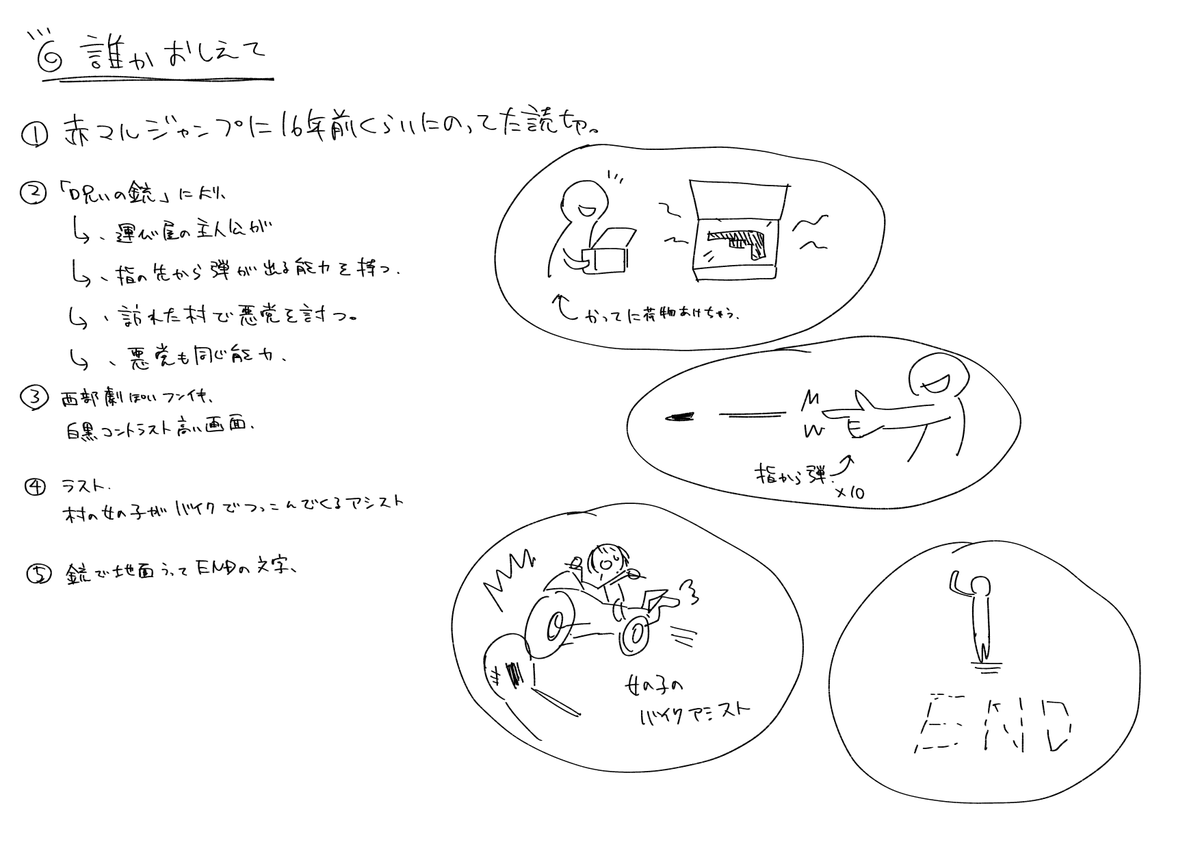 誰かおしえて
① 赤マルジャンプに16年前くらいにのってた読切。
② 「呪いの銃」により、
↳、運び屋の主人公が
↳、指の先から弾が出る能力を持つ、
↳、訪れた村で悪党を討つ。
↳、悪党も同じ能力、
③ 西部劇ぽいフンイキ、
白黒コントラスト高い画面、
④ ラスト、
村の女の子がバイクでつっこんでくるアシスト
⑤ 銃で地面うってENDの文字、
かってに荷物あけちゃう、
指から弾、
×10
女の子の
バイクアシスト
END